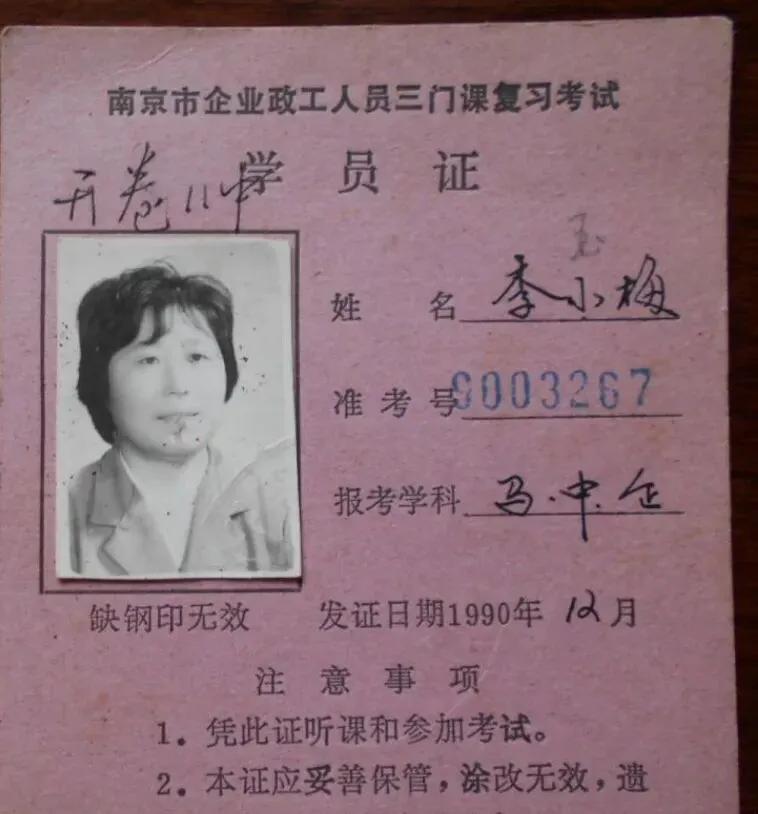 南京市企业政工人员三门课复习考试
学员证
开卷
玉
姓名 李小梅
准考号 9003267
报考学科 马.中.企
缺钢印无效 发证日期1990年12月
注意事项
1. 凭此证听课和参加考试。
2. 本证应妥善保管，涂改无效，遗